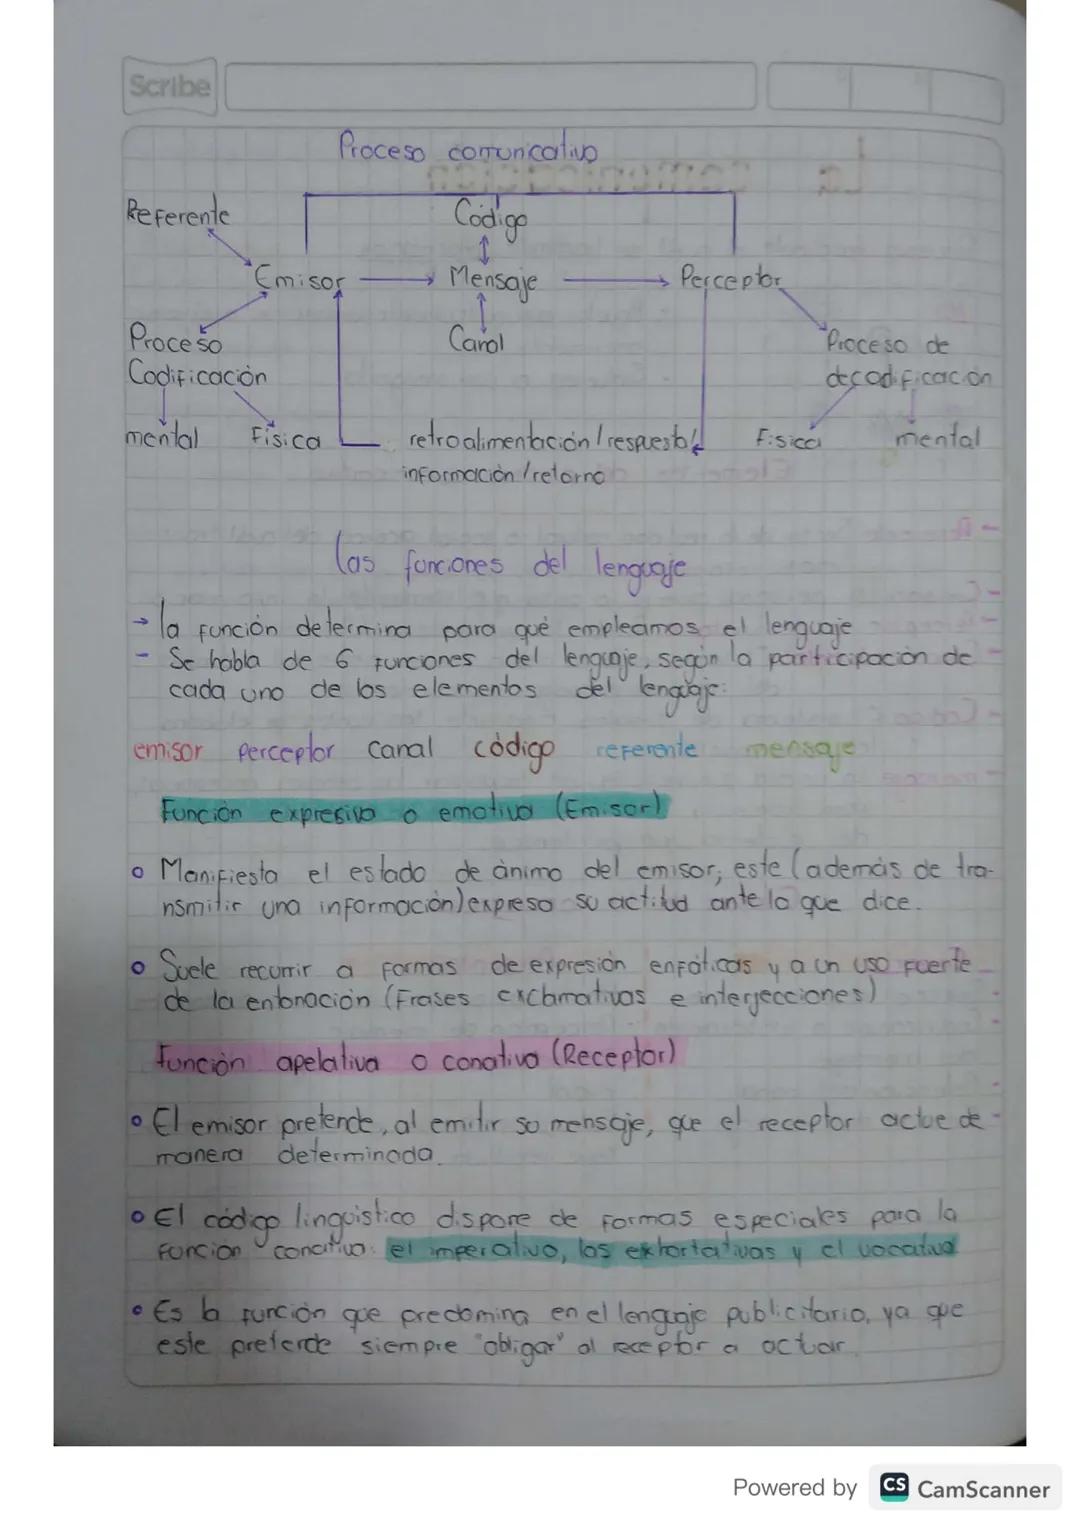 Scribe
Proceso comunicativo
Referente
Código
Emisor
Mensaje
Perceptor
Proceso
Codificación
Canal
Proceso de
decodificación
mental
Física
retroalimentación / respuesta/
información / retorno
Física
mental
las funciones del lenguaje
→ la función determina para qué empleamos el lenguaje
- Se habla de 6 funciones del lenguaje, según la participación de
cada uno de los elementos del lenguaje:
emisor perceptor canal código referente mensaje
Función expresiva o emotiva (Emisor)
o Manifiesta el estado de ánimo del emisor; este (además de tra-
nsmitir una información) expresa su actitud ante lo que dice.
o Suele recurrir a formas de expresión enfáticas y a un uso fuerte
de la entonación (Frases exclamativas e interjecciones)
Función apelativa o conativa (Receptor)
o El emisor pretende, al emitir su mensaje, que el receptor actue de
manera determinada.
o El código linguistico dispone de formas especiales para la
función conativa: el imperativo, las exhortativas y el vocativo
o Es la función que predomina en el lenguaje publicitario, ya que
este pretende siempre "obligar" al receptor a actuar.
Powered by CS CamScanner